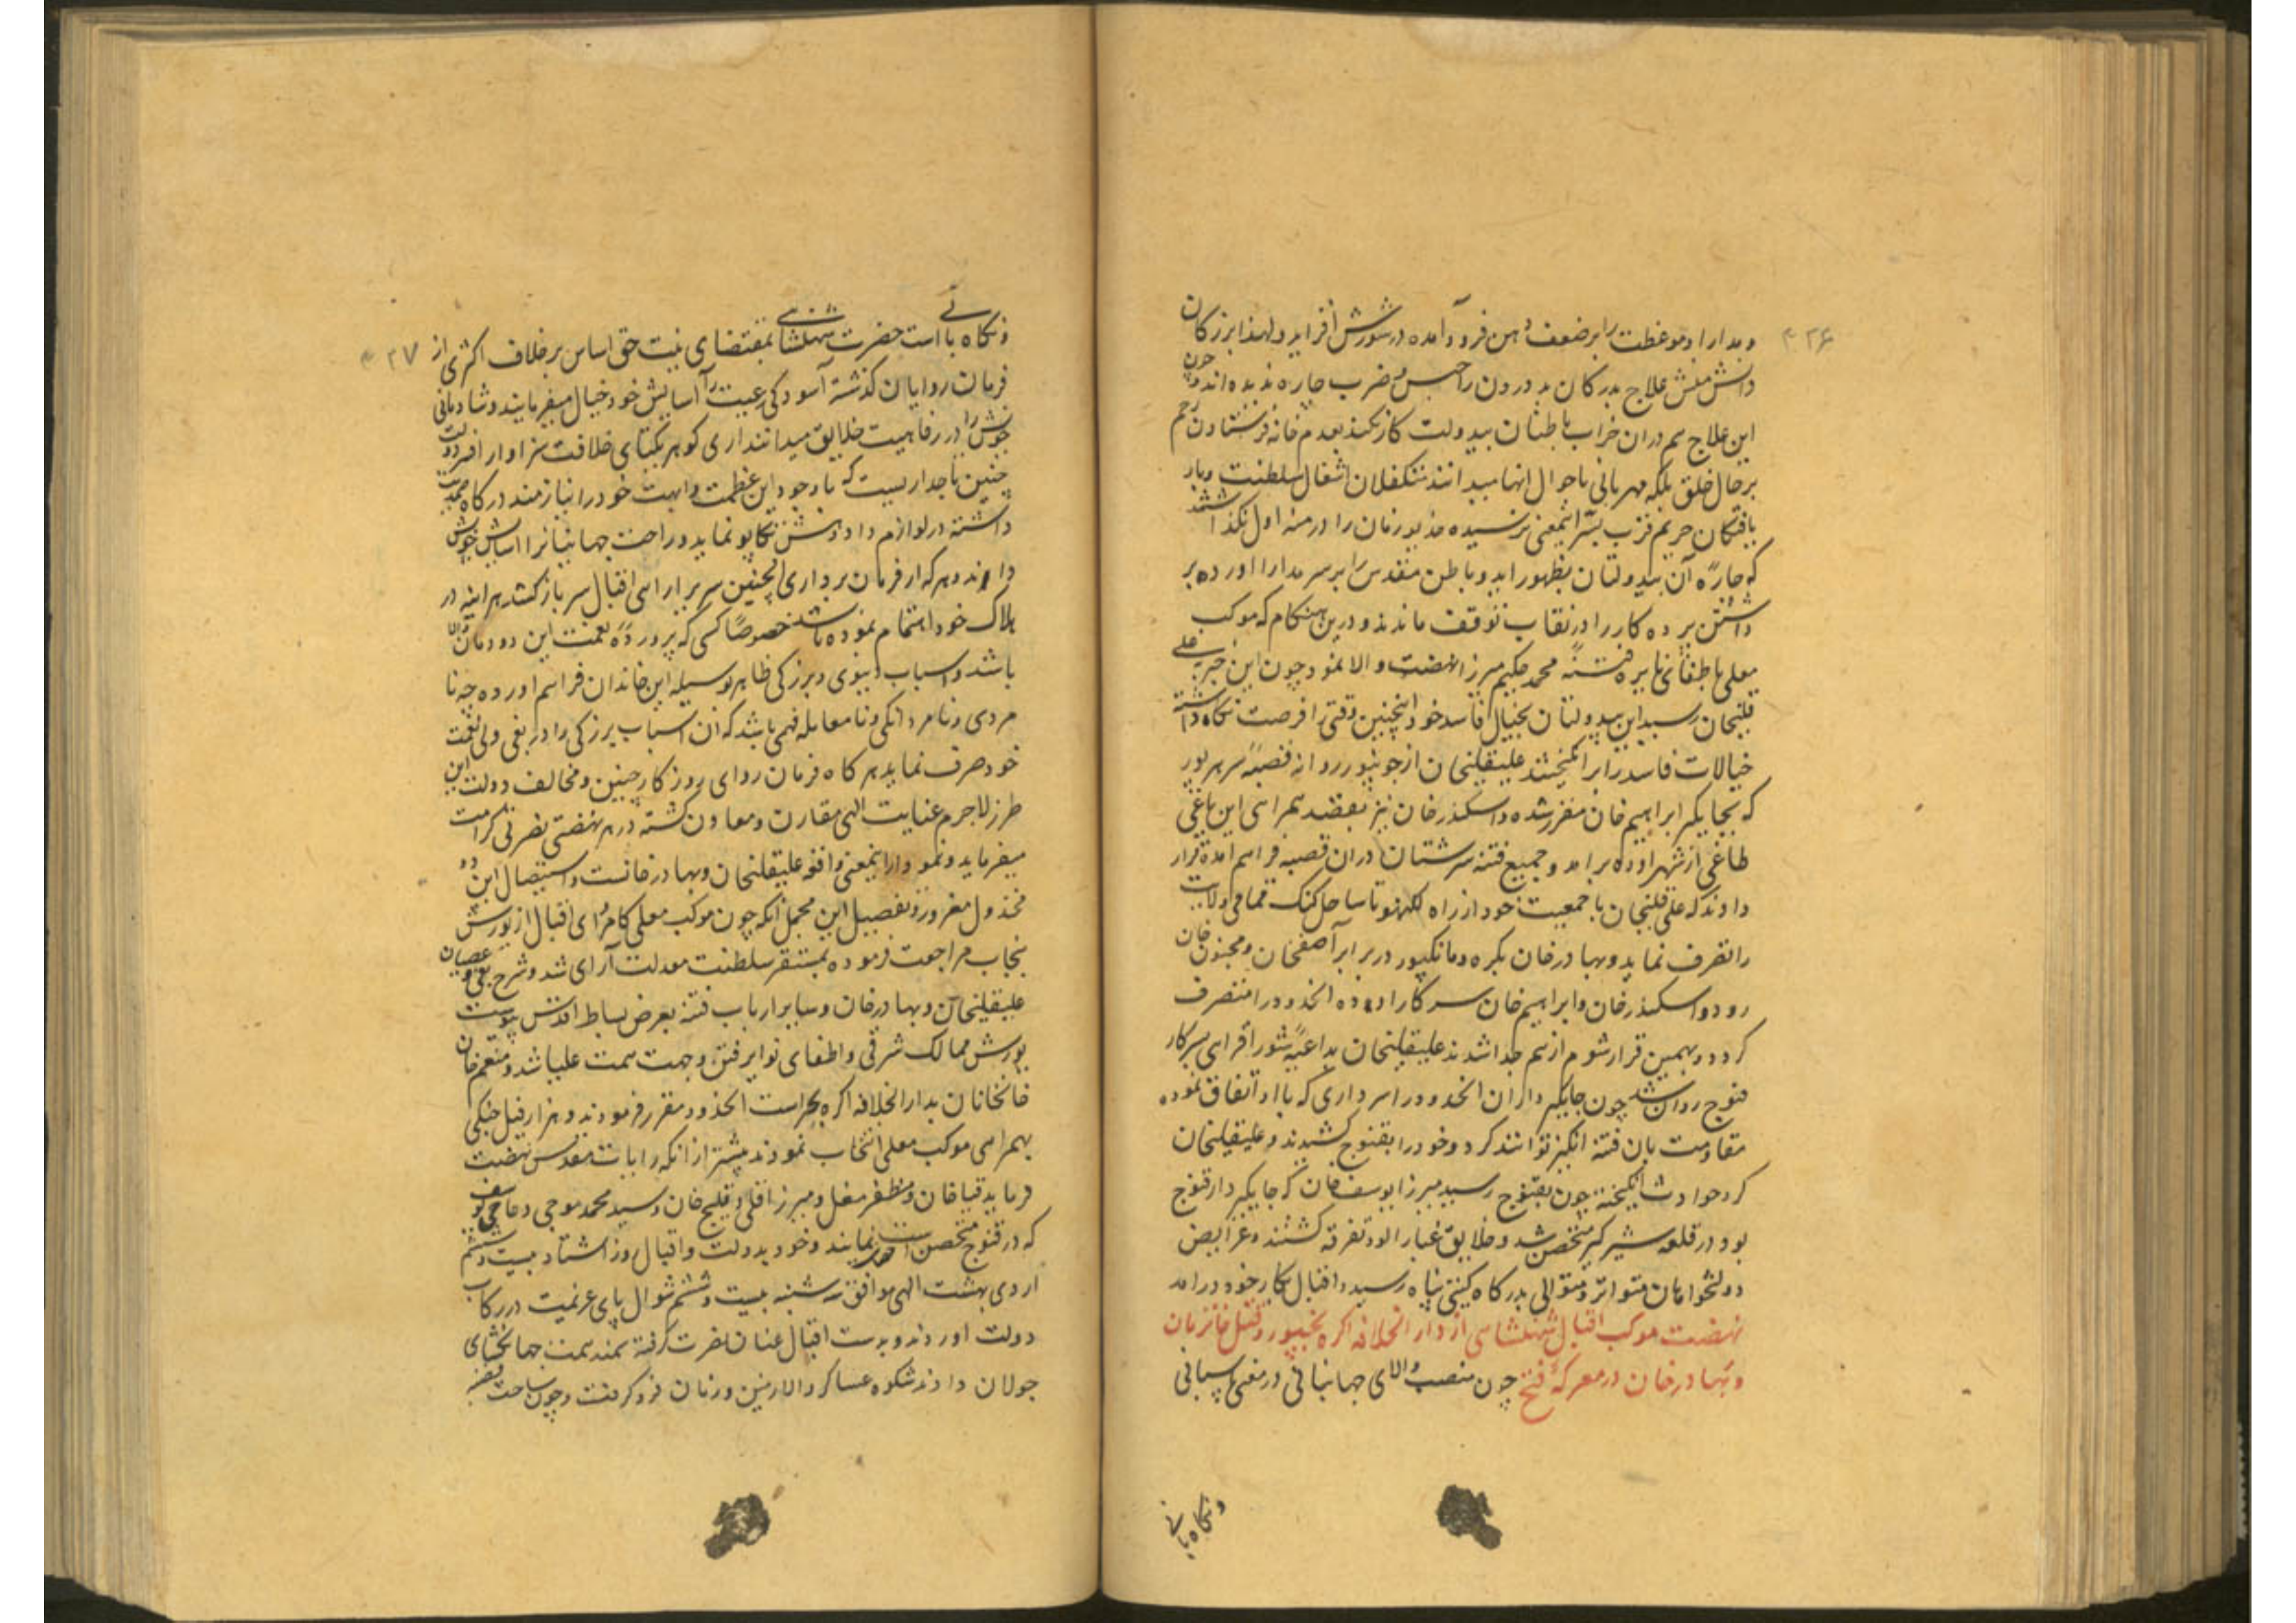 ۴۲۶
و مدارا و موعظت را بر ضعف و هن فرود آمده در شورش افزاید و لهذا بزرگان
دانش منش علاج بدرکان بد درون را جز حبس و ضرب چاره ندیده اند و چون
این علاج هم در ان خراب باطنان بیدولت کار نکند بعدم خانه فرستادن رحم
بر حال خلق بلکه مهربانی باحوال انها میدانند متکفلان اشغال سلطنت و بار
یافتکان حریم قرب بسر اینمعنی نرسیده مذبور زمان را در مرتبه اول نکذاشتند
که چاره آن بیدولتان بظهور اید و باطن مقدس را بر سر مدارا اورده بر
داشتن پرده کار را در نقاب توقف ماندند و درین هنکام که موکب
معلی باطفای نایره فتنه محمد حکیم میرزا نهضت والا نمود چون این خبر بعلی
قلیخان رسید این بیدولتان بخیال فاسد خود اینچنین وقتی را فرصت نکاه داشته
خیالات فاسد را برانکیختند علیقلیخان از جونپور روانه قصبه سرهرپور
که بجایکیر ابراهیم خان مقرر شده و اسکندر خان نیز بقصد همراهی این باغی
طاغی از شهر اوده برامد و جمیع فتنه سرشتان در ان قصبه فراهم امده قرار
دادند که علی قلیخان با جمعیت خود از راه لکهنو تا ساحل کنک تمامی ولایت
را تصرف نماید و بهادر خان بکره و مانکپور در برابر آصفخان و مجنون خان
رود و اسکندر خان و ابراهیم خان سرکار اوده و ان حدود را متصرف
کردد و بهمین قرار شوم از هم جدا شدند علیقلیخان بداعیه شور افزای سرکار
قنوج روان شد چون جایکیر داران انحدود را سرداری که باو اتفاق نموده
مقاومت بان فتنه انکیز توانند کرد و خود را بقنوج کشیدند و علیقلیخان
کرد حوادث انکیخته چون بقنوج رسید میرزا یوسف خان که جایکیر دار قنوج
بود در قلعه شیر کر متحصن شد و خلایق غبار الود تفرقه کشتند و عرایض
دولتخواهان متواتر و متوالی بدرکاه کیتی پناه رسید و اقبال بکار خود درامد
نهضت موکب اقبال شهنشاهی از دار الخلافه اکره بجونپور و قتل خانزمان
و بهادر خان در معرکه فتح چون منصب والای جهانبانی در معنی پاسبانی
و نکاه بانی
۴۲۷
و نکاه بانی است حضرت شهنشاهی بمقتضای نیت حق اساس بر خلاف اکثری از
فرمان روایان کذشته آسودکی رعیت را آسایش خود خیال میفرمایند و شادمانی
خویش را در رفاهیت خلایق میدانند اری کوهر یکتای خلافت سزاوار افسر دولت
چنین تاجداریست که با وجود این عظمت و ابهت خود را نیازمند درکاه صمدیت
داشته در لوازم داد و دهش تکاپو نماید و راحت جهانیان را اسایش خویش
داند و هر که از فرمان برداری اینچنین سریر ارای اقبال سر باز کشد هر اینه در
هلاک خود اهتمام نموده باشد خصوصًا کسی که پرورده نعمت این دودمان والا
باشد و اسباب دنیوی و بزرکی ظاهر بوسیله این خاندان فراهم اورده چه نا
مردی و نامردانکی و نا معامله فهمی باشد که ان اسباب بزرکی را در بغی ولی نعمت
خود صرف نماید هر کاه فرمان روای روزکار چنین و مخالف دولت این
طرز لاجرم عنایت الهی مقارن و معاون کشته در هر نهضتی نصرتی کرامت
میفرماید و نمودار اینمعنی واقعه علیقلیخان و بهادر خانست و استیصال این دو
مخذول مغرور و تفصیل این مجمل انکه چون موکب معلی کامروای اقبال از یورش
پنجاب مراجعت فرموده بمستقر سلطنت معدلت آرای شد و شرح بغی و عصیان
علیقلیخان و بهادر خان و سایر ارباب فتنه بعرض بساط اقدس پیوست
یورش ممالک شرقی و اطفای نوایر فتن وجهت همت علیا شد و منعم خان
خانخانان بدار الخلافه اکره بحراست انحدود مقرر فرمودند و دو هزار فیل جنکی
بهمراهی موکب معلی انتخاب نمودند پیشتر از انکه رایات مقدس نهضت
فرماید قیا خان و مظفر مغل و میرزا قلی و قلیج خان و سید محمد موجی و حاجی یوسف
که در قنوج متحصن است نمایند و خود بدولت و اقبال روز اشتاد بیست و ششم
اردی بهشت الهی موافق سه شنبه بیست و ششم شوال پای عزیمت در رکاب
دولت اوردند و بدست اقبال عنان نصرت کرفته سمند همت جهانکشای
جولان دادند شکوه عساکر والا زمین و زمان فرو کرفت و چون ساحت قصبه